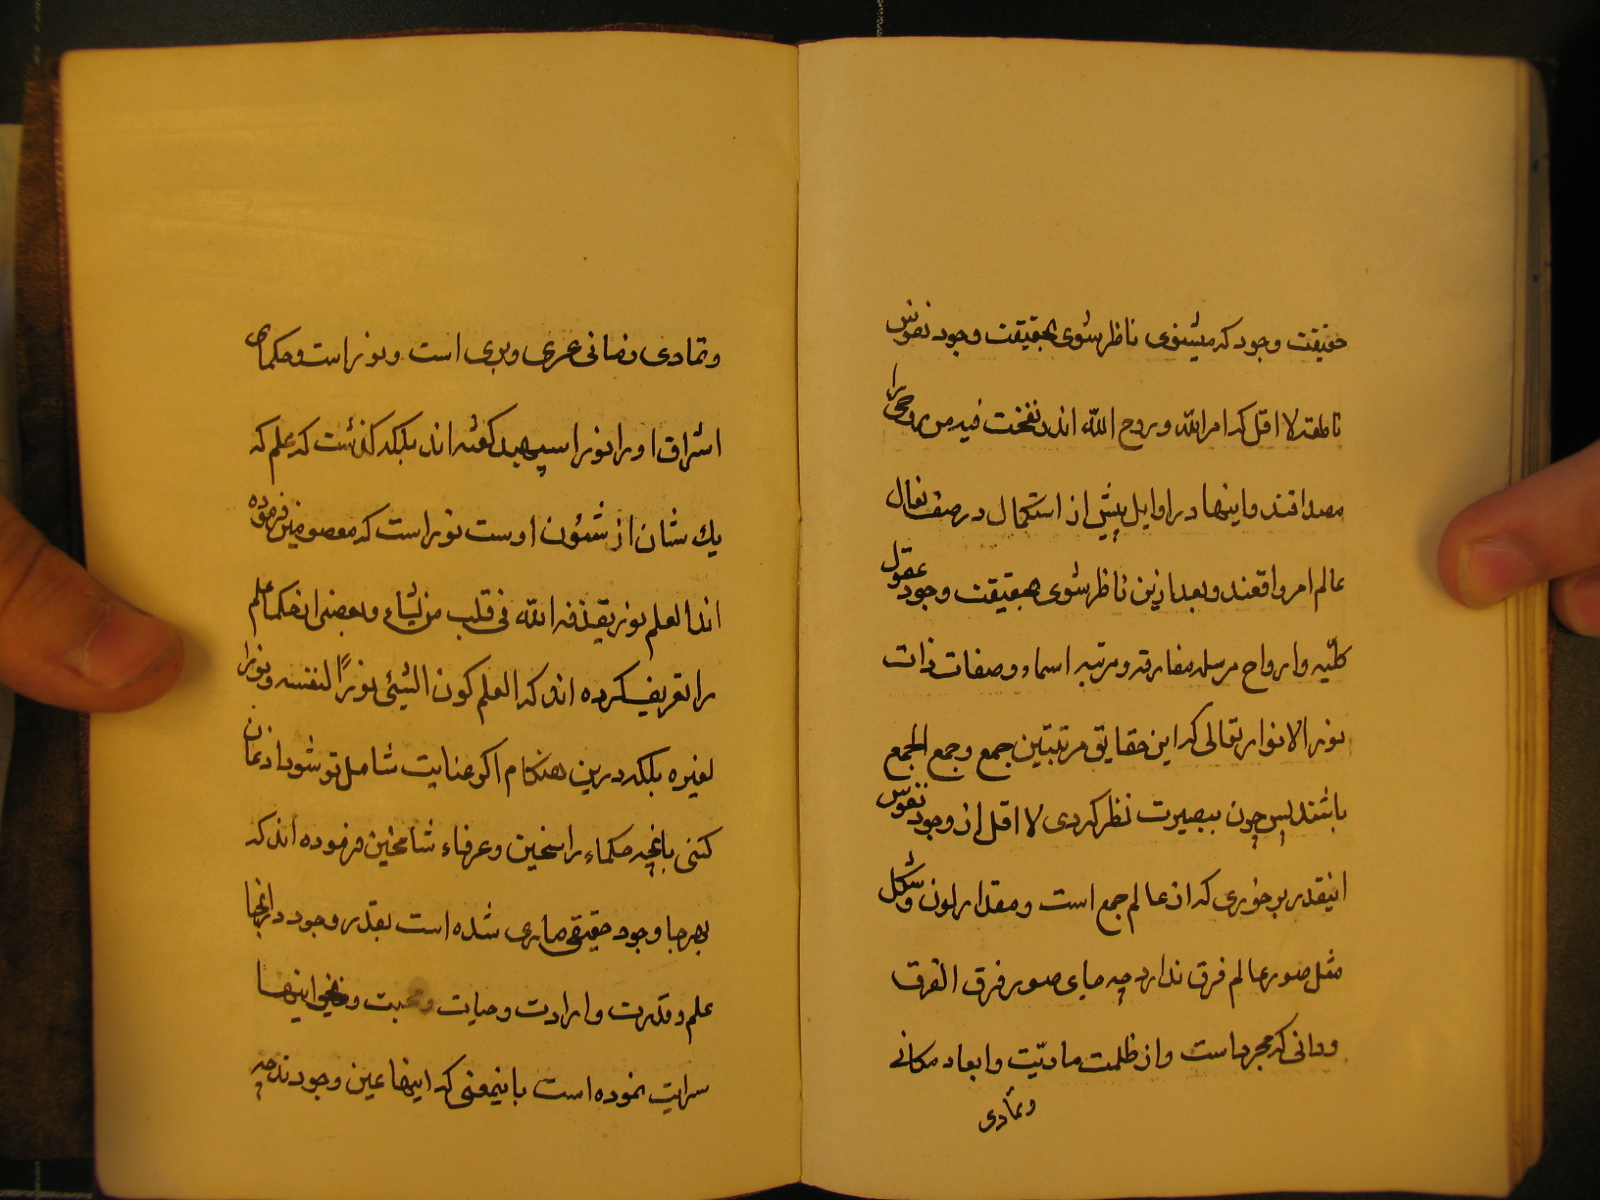 حقیقت وجود که میشنوی ناظر شوی بحقیقت وجود نفوس
ناطقه لا اقل که امر الله و روح الله اند و نفخت فیه من روحی را
مصداقند و اینها در اوایل پیش از استکمال در صف نعال
عالم امر واقعند و بعد ازین ناظر شوی بحقیقت وجود عقول
کلّیه و ارواح مرسله مفارقه و مرتبه اسماء و صفات ذات
نور الانوار تعالی که این حقایق مرتبتین جمع و جمع الجمع
باشند پس چون ببصیرت نظر کردی لا اقل از وجود نفوس
اینقدر بر خوری که از عالم جمع است و مقدار لون و شکل
مثل صور عالم فرق ندارد چه جای صور فرق الفرق
و دانی که مجرد است و از ظلمت مادیّت و ابعاد مکانی
و تمادی
و تمادی زمانی عری و بری است و نور است و حکمای
اشراق او را نور اسپهبد گفته اند بلکه گذشت که علم که
یک شان از شئون اوست نور است که معصومین فرموده
اند العلم نور یقذفه الله فی قلب من یشاء و بعضی از حکما علم
را تعریف کرده اند که العلم کون الشیئی نورًا لنفسه و نورا
لغیره بلکه درین هنگام اگر عنایت شامل تو شود اذعان
کنی بانچه حکماء راسخین و عرفاء شامخین فرموده اند که
بهر جا وجود حقیقی ساری شده است بقدر وجود در انجا
علم و قدرت و ارادت و حیات و محبت و نحو اینها
سرایت نموده است باینمعنی که اینها عین وجودند چه